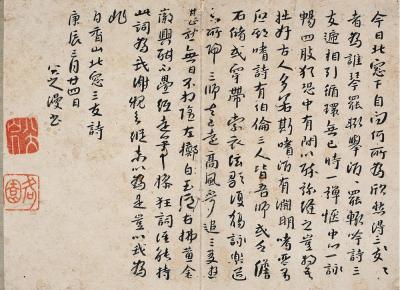 今日北窗下自問何所為欣然得三友々
者為誰琴罷輒舉酒々罷輒吟詩三
友遞相引循環無已時一彈愜中心一詠
暢四肢猶恐中有間以酒彌縫之豈獨吾
拙好古人多若斯嗜酒有淵明嗜琴有
啟期嗜詩有伯倫三人皆吾師或乏儋
石儲或穿帶索衣弦歌復觴詠樂道
知所歸三師去已遠高風不可追三友游
甚熟無日不相隨左擲白玉卮右拂黃金
徽興酣不疊紙走筆操狂詞誰能持
此詞為我謝親知縱未以為是豈以我為
非
白香山北窗三友詩
庚辰三月廿四日
八